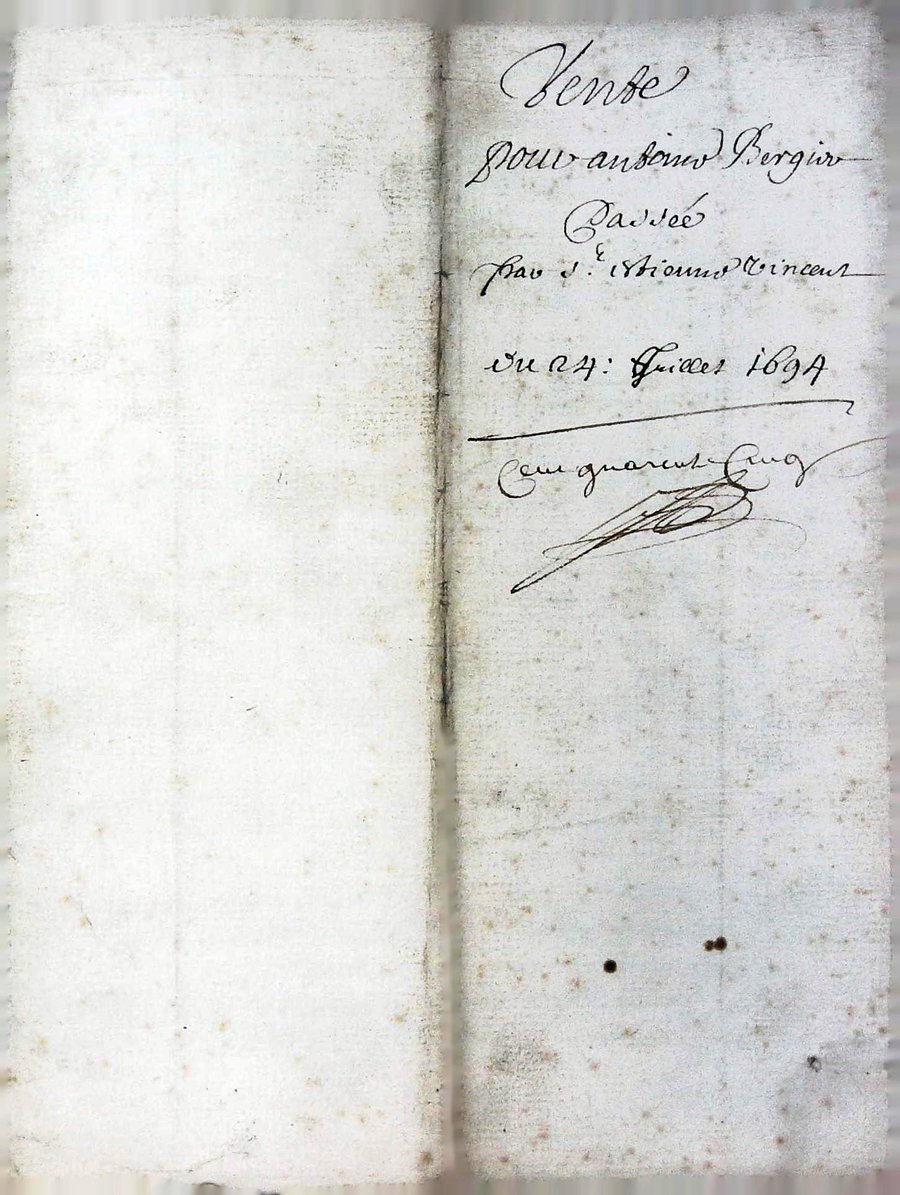 Vente
pour antoine Bergier
Passée
par Sr. estienne Vincent
du 24: Juillet 1694
Cent quarente Cinq